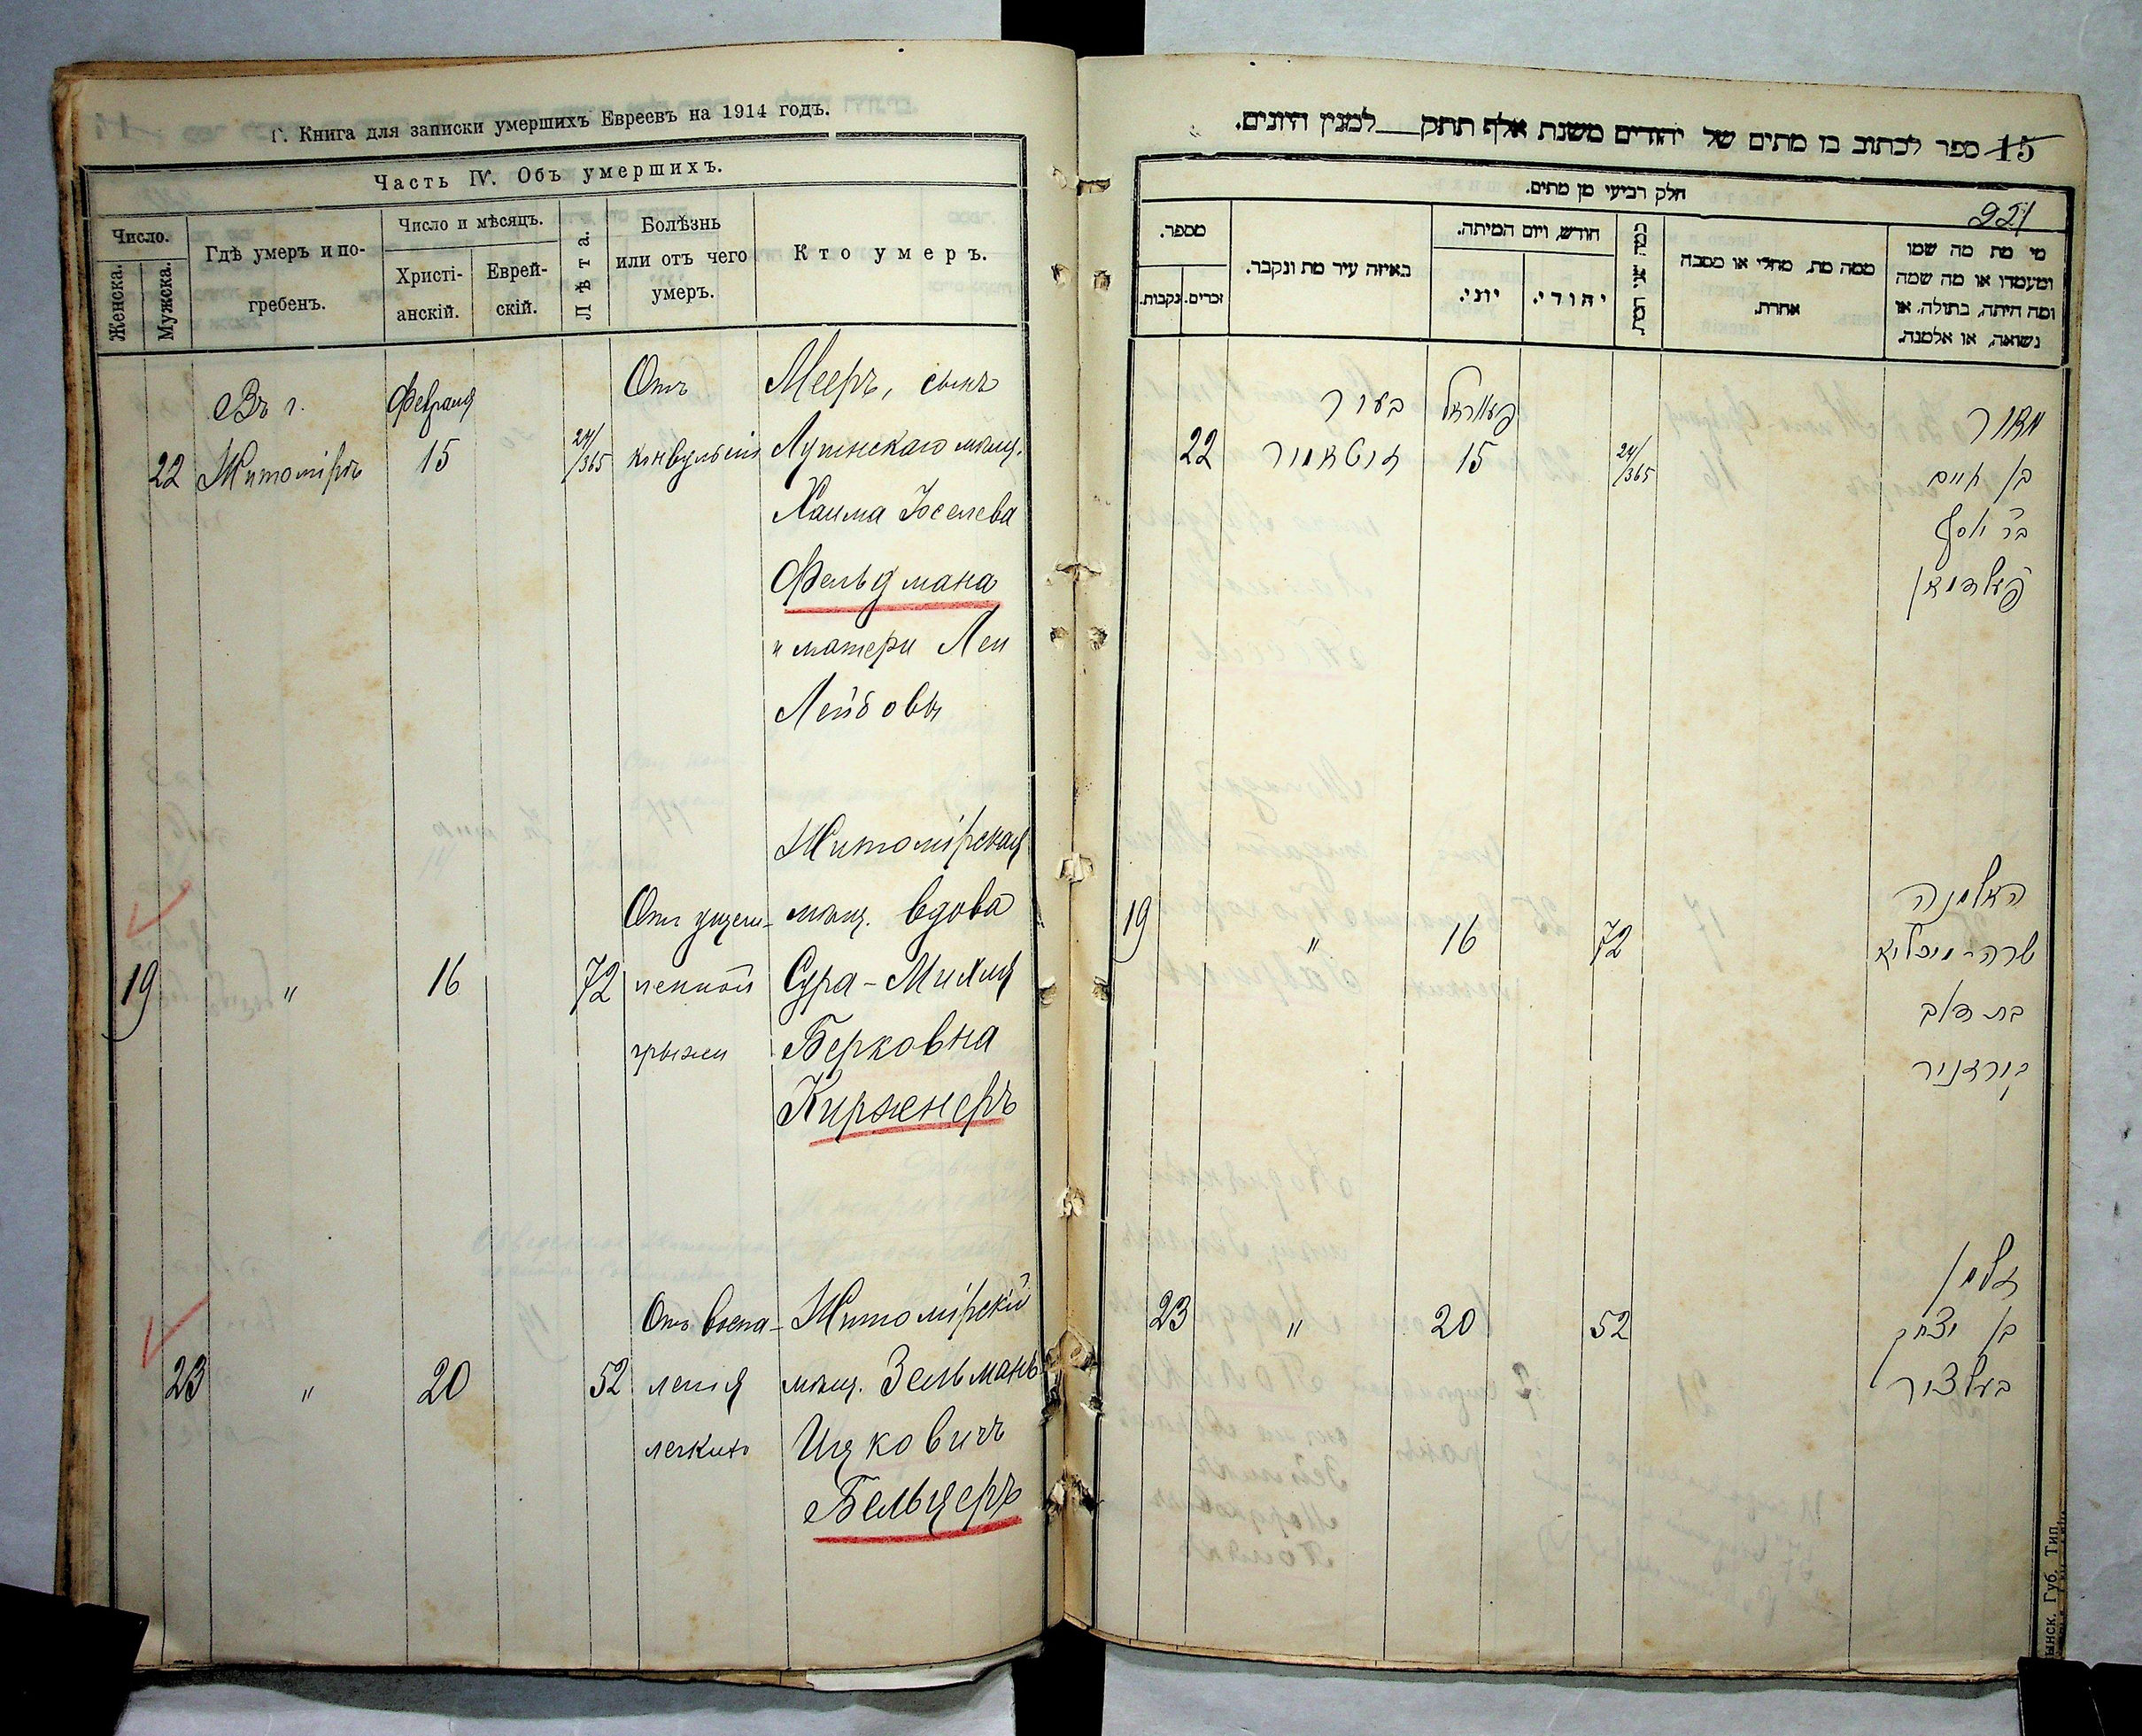 Г. Книга для записки умершихъ Евреевъ на 1914 годъ.
Часть IV. Объ умершихъ.
Число.
Женска.
Мужска.
Гдѣ умеръ и по-
гребенъ.
Число и мѣсяцъ.
Христі-
анскій.
Еврей-
скій.
Лѣта.
Болѣзнь
или отъ чего
умеръ.
Кто умеръ.
Въ г. Февраля Отъ Мееръ, сынъ
22 Житомірѣ 15 24/365 конвульсій Лугинскаго мѣщ.
Хаима Іоселева
Фельдмана
и матери Леи
Лейбовы
Житомірская
Отъ ущем- мѣщ. вдова
19 " 16 72 ленной Сура-Михля
грыжи Берковна
Кирженеръ
Отъ воспа- Житомірскій
23 " 20 52 ленія мѣщ. Зельманъ
легкихъ Ицковичъ
Бельцеръ
15 ספר לכתוב בו מתים של יהודים משנת אלף תתק למנין היונים.
חלק רביעי מן מתים.
221
מספר.
זכרים.
נקבות.
באיזה עיר מת ונקבר.
חודש, ויום המיתה.
יוני.
יהודי.
כמה שני המת
ממה מת, מחלי או מסבה
אחרת.
מי מת מה שמו
ומעמדו או מה שמה
ומה היתה, בתולה, או
נשואה, או אלמנה.
בעיר פעווראל מאיר
22 זיטאמיר 15 24/365 בן חיים
בר יוסף
פעלדמאן
האלמנה
19 " 16 72 שרה-מיכליא
בת דוב
קירזניר
זלמן
23 " 20 52 בן יצחק
בעלציר
ынск. Губ. Тип.